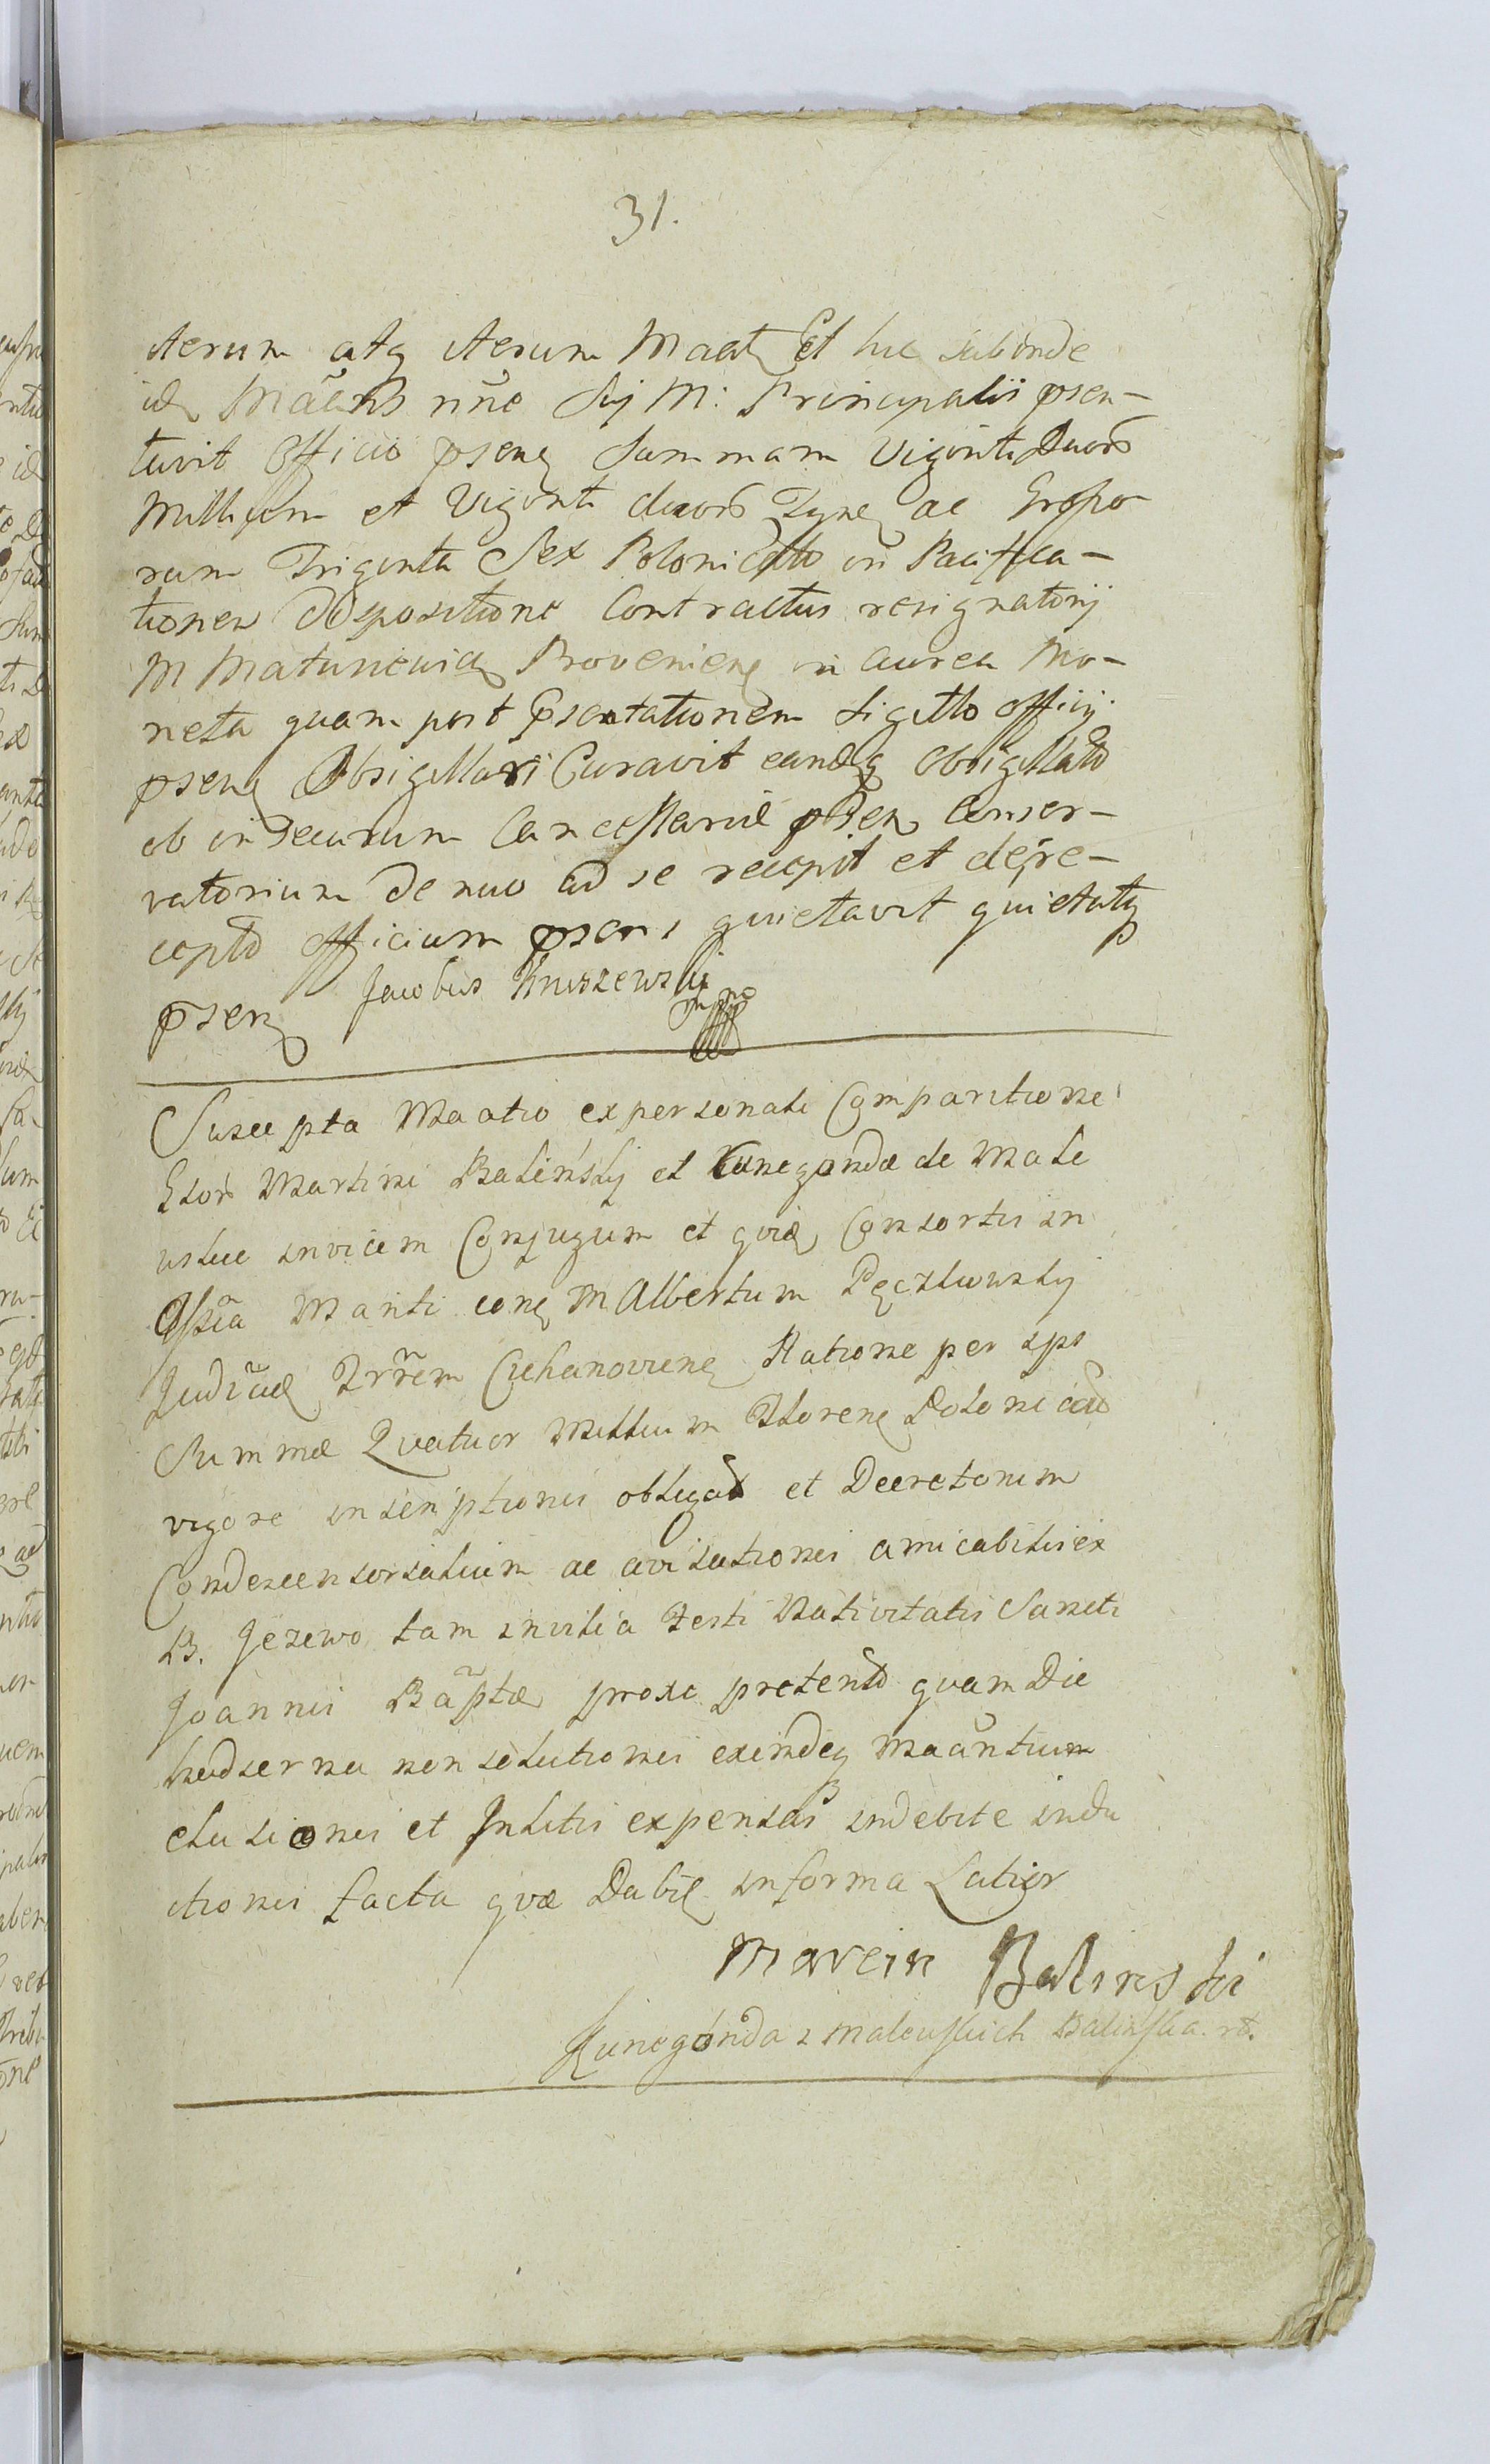 31.
iterum atq iterum Maatq Et hic subinde
idq Mãẽns nñe Suj M: Principalis psen-
tavit Officio psenq Summam Viginti Duorõ
Millium et Viginti duorõ Tynfq ac Grosso
rum Triginta Sex Polonicalõ in Pacifica-
tionem dispositione Contractus resignatorij
M Matusiewicz Provenienq in aurea Mo-
neta quam post psentationem Sigillo officij
psenq Obsigillari Curavit eandqq obsigillatõ
ob in Securum Cancellariæ psenq Conser-
vatorium de nuo ad se recepit et de pre-
ceptõ officium psens quietavit quietatq
psenq Jacobus Kruszewski
mpp
Suscepta Maatio ex personali Comparitione
Gsorõ Martini Balinskij et Cunegondæ de Male
wskie invicem Conjugum et qviæ Consortis in
Assña Mañti conq M Albertum Pęczkowskij
Judicẽ Trrẽm Ciechanoviensq Ratione per ips
Summæ Qvatuor Millium Florenq Polonicalõ
vigore inscriptionis obligaõ et Decretorum
Condescensorialium ac avisationis amicabilis ex
B. Jeżewo tam invilia Festi Nativitatis Sancti
Joannis Bãptæ proxe pretentõ quam Die
hodierna non solutionis exindeq Maãntium
elusionis et Inlitis expensas indebite indu
itionis facta qvæ Dabilq in forma Latior
Marcin Balinski
Kunegonda z Malewskich Balinska. rõ.